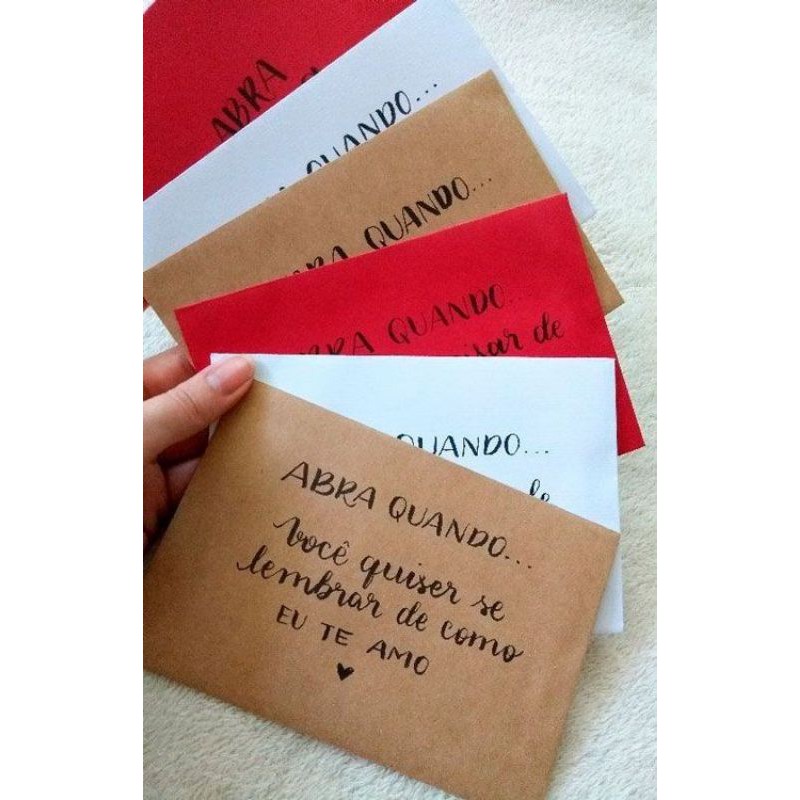 ABRA
QUANDO...
ABRA QUANDO...
ABRA QUANDO...
quisar de
QUANDO...
ABRA QUANDO...
Você quiser se
lembrar de como
EU TE AMO
♥